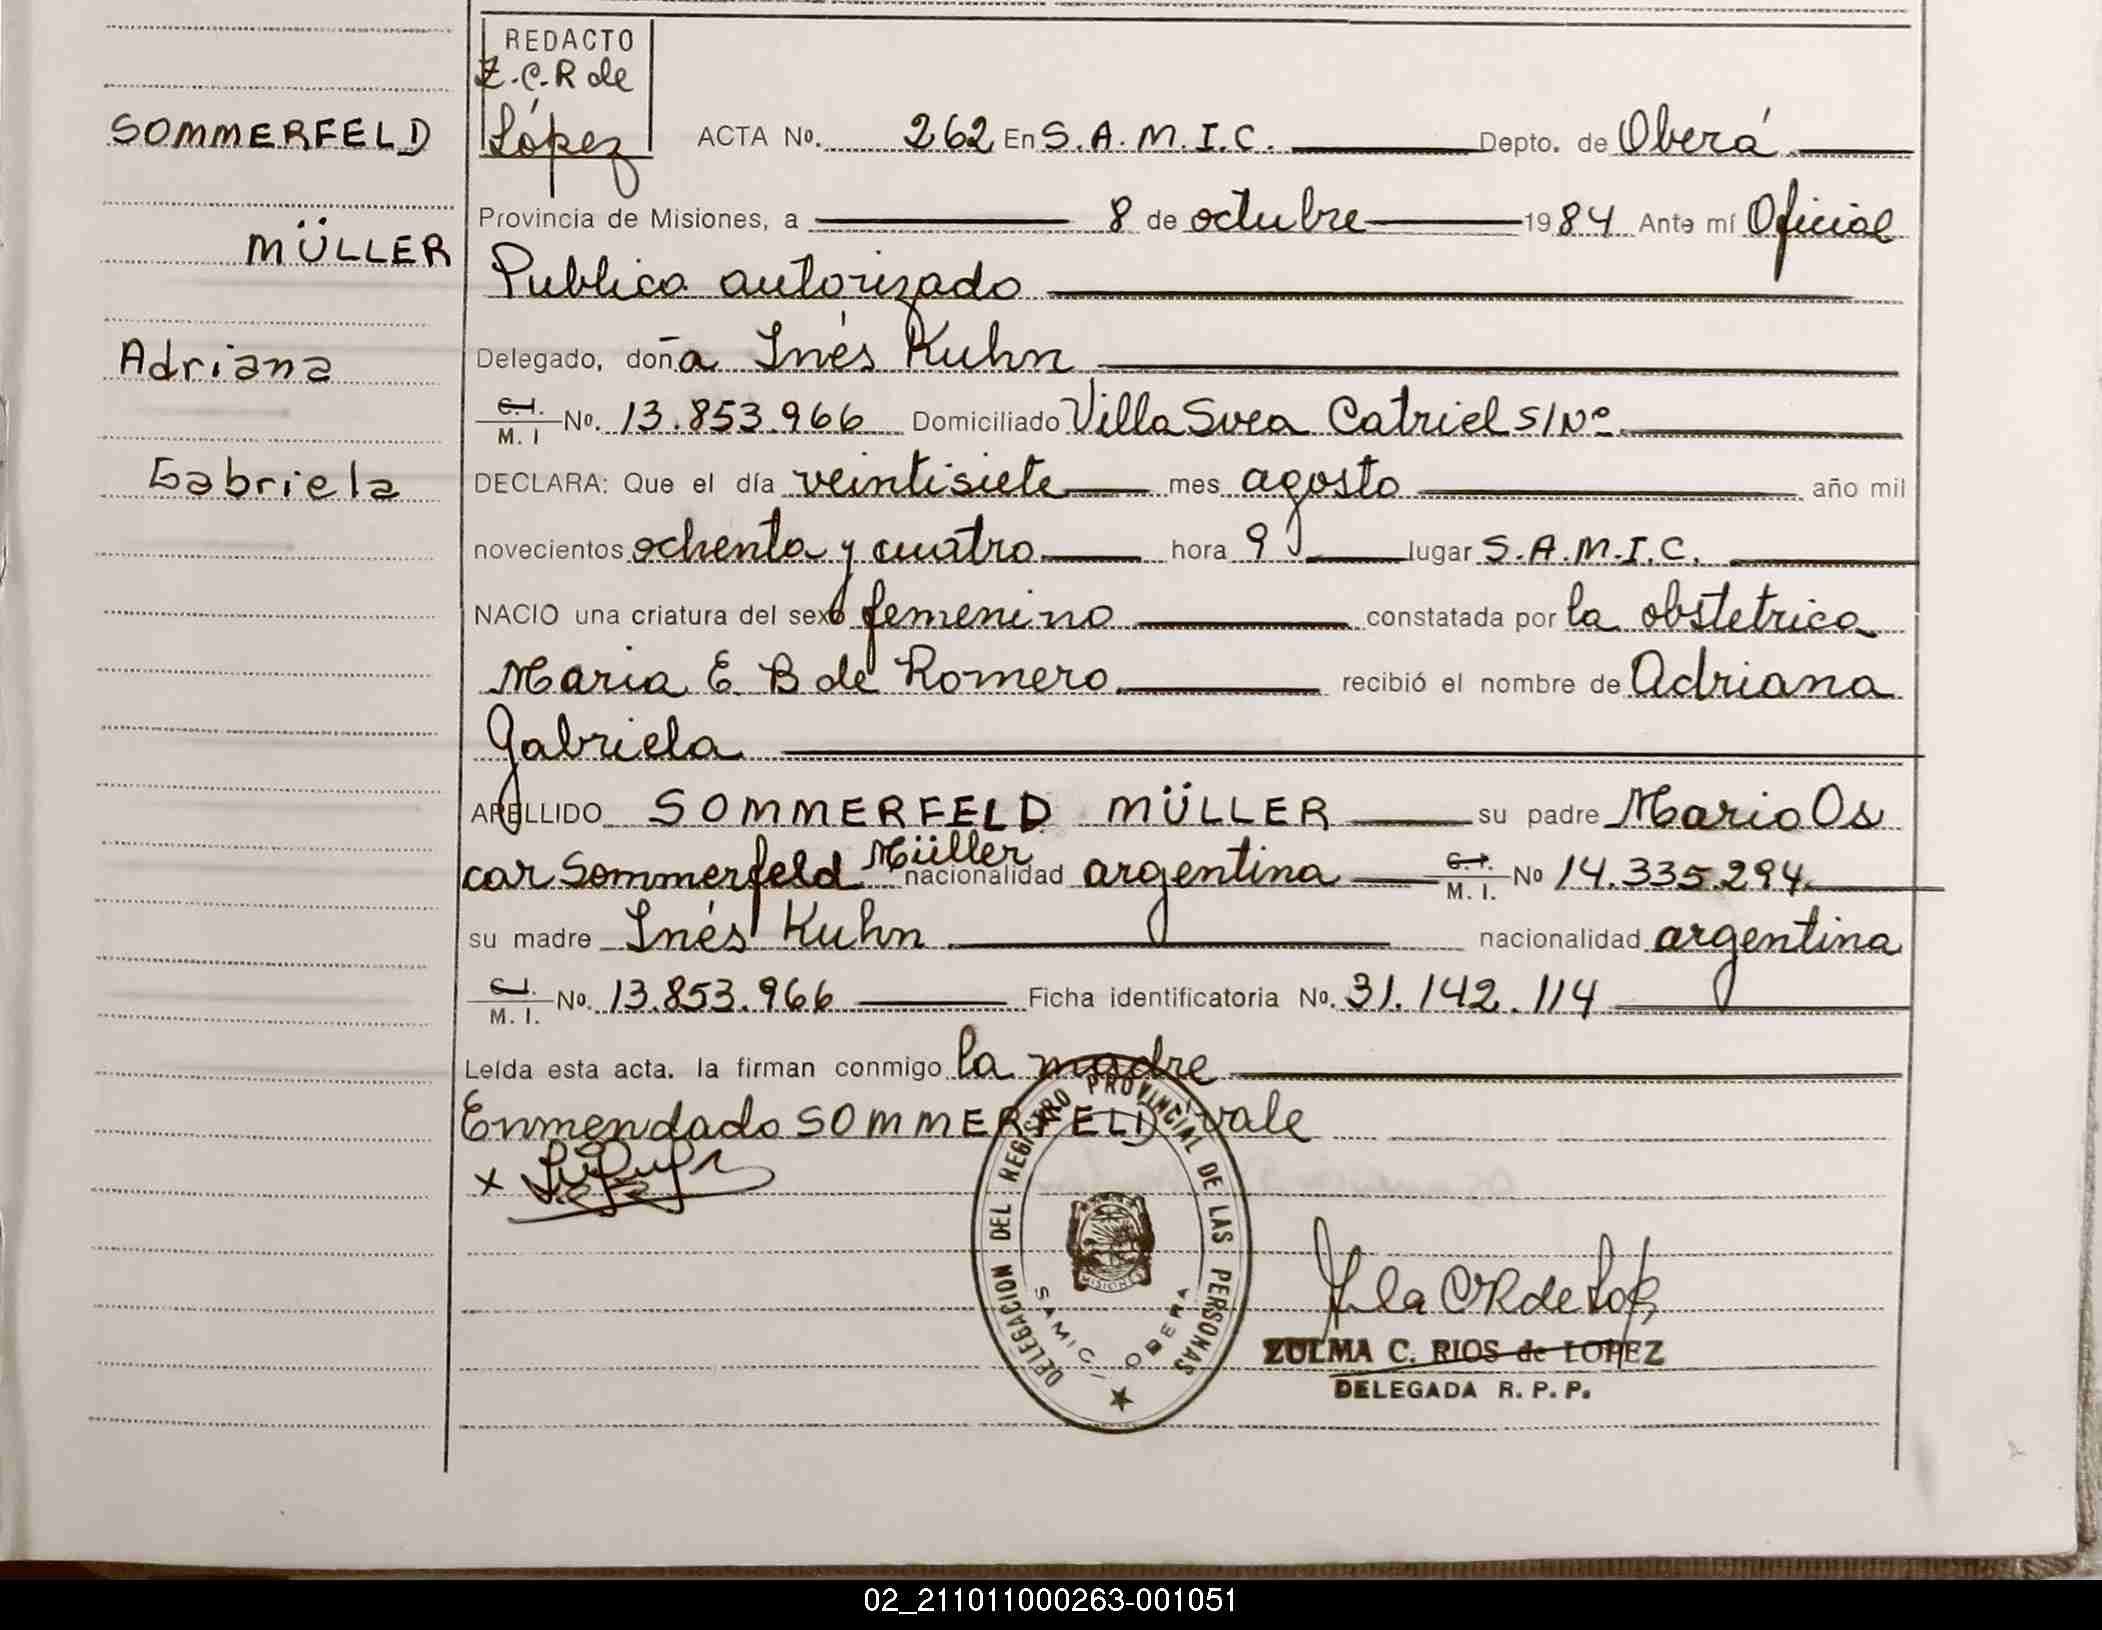 REDACTO
Z.C.R de
López
SOMMERFELD
MÜLLER
Adriana
Gabriela
ACTA No. 262 En S.A.M.I.C. Depto. de Oberá
Provincia de Misiones, a 8 de octubre 1984 Ante mí Oficial
Publico autorizado
Delegado, doña Inés Kuhn
C.I. M. I No. 13.853.966 Domiciliado Villa Svea Catriel S/Nº
DECLARA: Que el día veintisiete mes agosto año mil
novecientos ochenta y cuatro hora 9 lugar S.A.M.I.C.
NACIO una criatura del sexo femenino constatada por la obstetrica
Maria E. B de Romero recibió el nombre de Adriana
Gabriela
APELLIDO SOMMERFELD MÜLLER su padre Mario Os
car Sommerfeld Müller nacionalidad argentina C.I. M. I. No 14.335.294
su madre Inés Kuhn nacionalidad argentina
C.I. M. I. No. 13.853.966 Ficha identificatoria No. 31.142.114
Leída esta acta. la firman conmigo la madre
Enmendado SOMMERFELD vale
x
DELEGACION DEL REGISTRO PROVINCIAL DE LAS PERSONAS
MISIONES
SAMIC OBERA
ZULMA C. RIOS de LOPEZ
DELEGADA R. P. P.
02_211011000263-001051